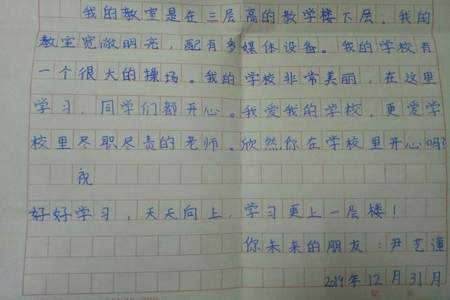 我的教室是在三层高的教学楼下层。我的
教室宽敞明亮，配有多媒体设备。我的学校有
一个很大的操场。我的学校非常美丽，在这里
学习，同学们都开心。我爱我的学校，更爱学
校里尽职尽责的老师。欣然你在学校里开心吗？
祝
好好学习，天天向上，学习更上一层楼！
你未来的朋友：尹艺潼
2019年12月31月